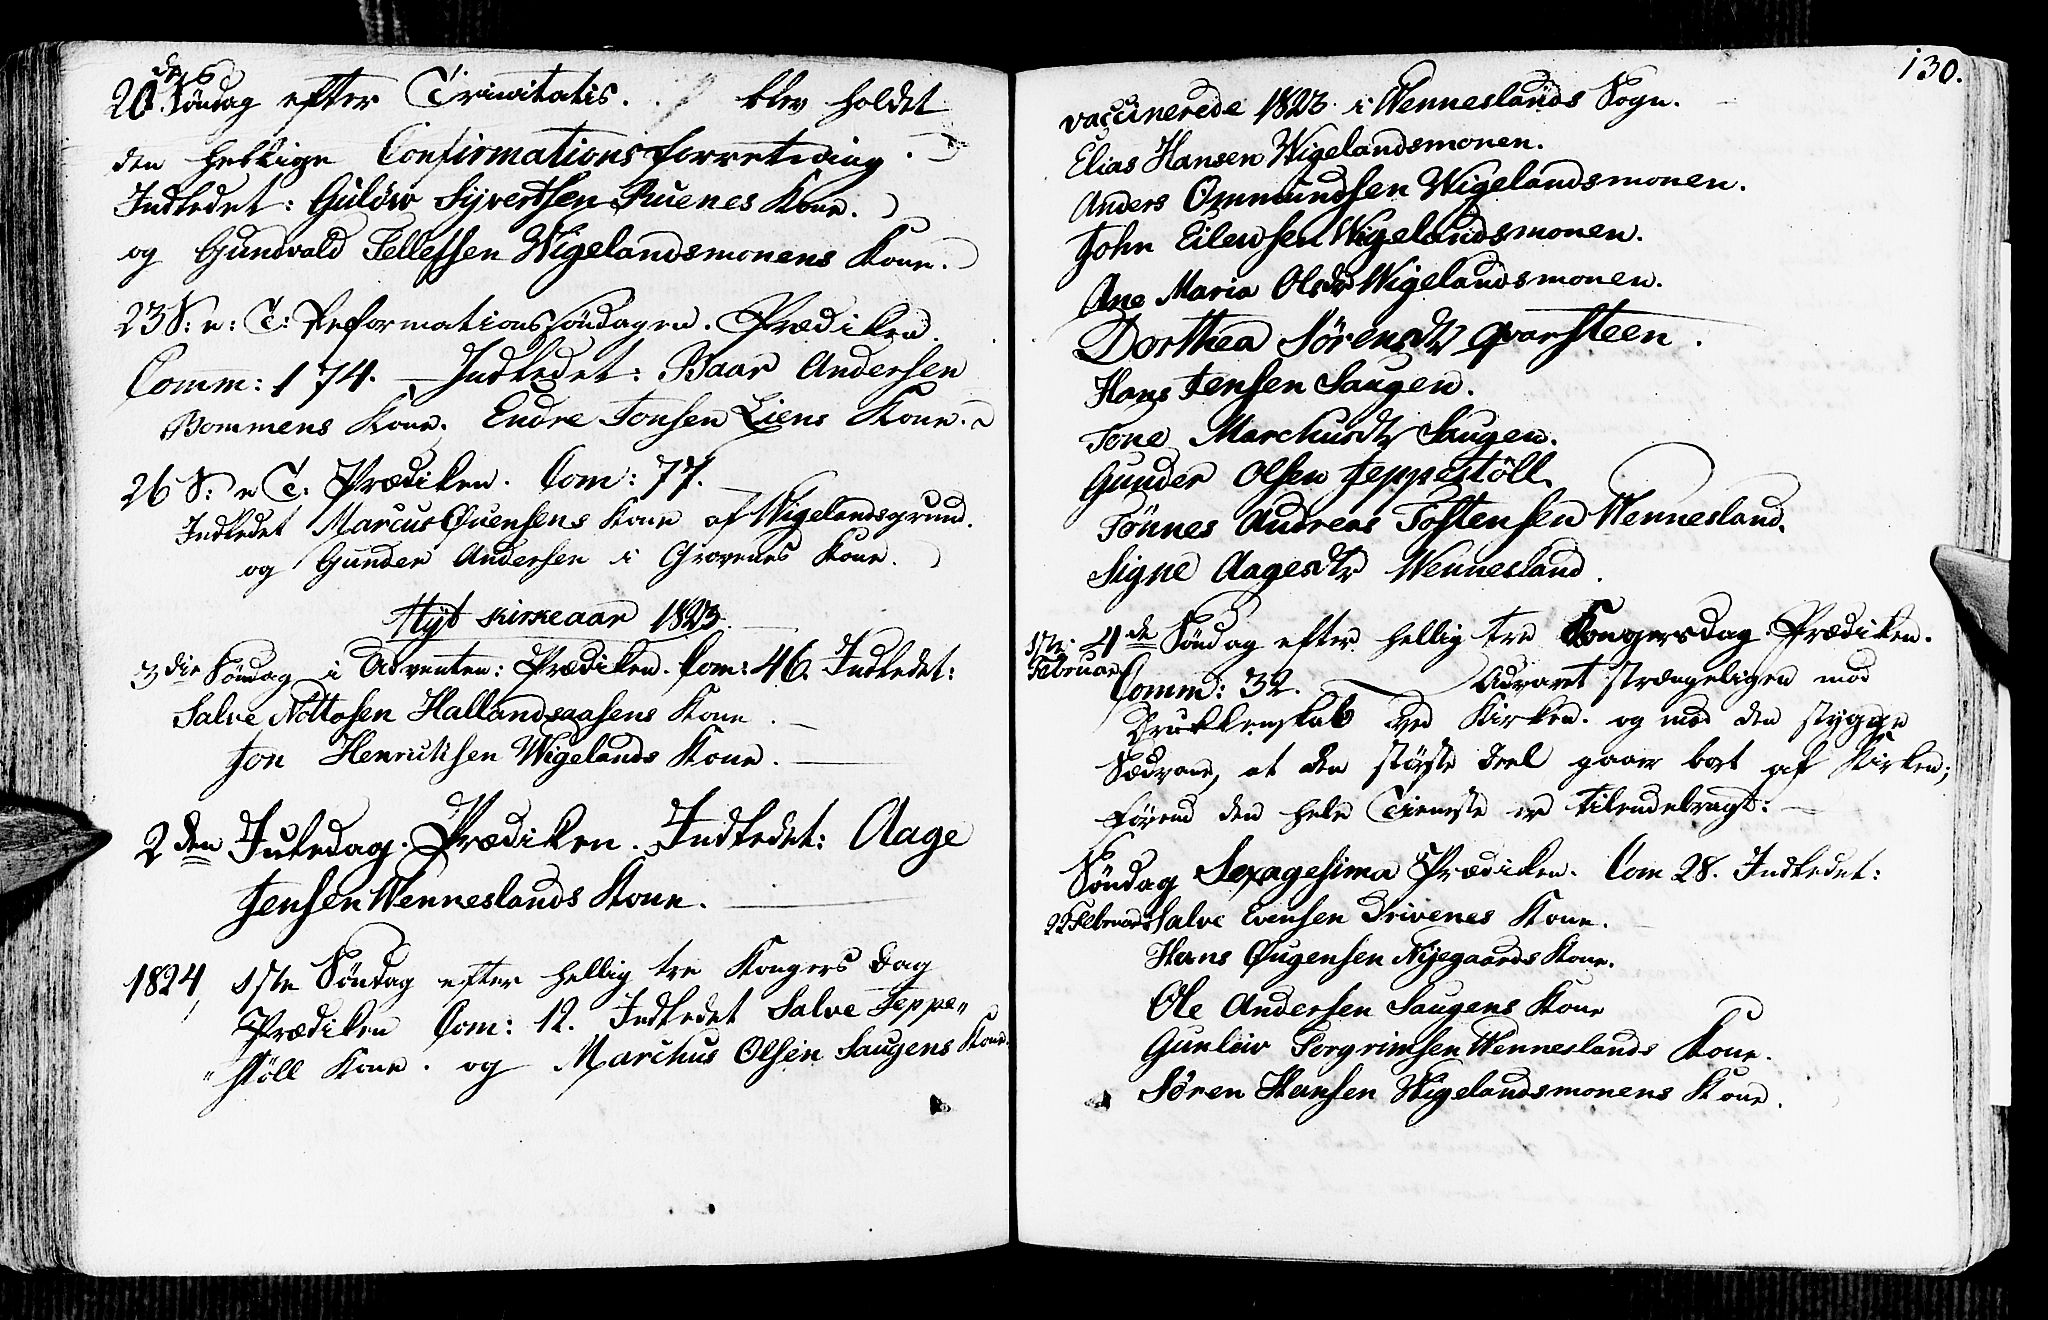 20de Søndag efter Trinitatis. blev holdt
den hellige Confirmationsforretning.
Indledet: Guløw Syvertsen Ruenes Kone.
og Gundvald Tellefsen Wigelandsmonens Kone.
23 S: e: T: Reformationssøndagen. Prædiken.
Comm: 174. Indledet: Baar Andersen
Bommens Kone. Endre Jonsen Liens Kone.
26 S: e T: Prædiken. Com: 77.
Indledet Marcus Øuensens Kone af Wigelandsgrund.
og Gunder Andersen i Grovenes Kone.
Nyt Kirkeaar 1823.
3die Søndag i Adventen: Prædiken. Com: 46. Indledet:
Salve Nottosen Hallandsaasens Kone.
Jon Henrichsen Wigelands Kone.
2den Juledag. Prædiken. Indledet: Aage
Jensen Wenneslands Kone.
1824 1ste Søndag efter hellig tre Kongers Dag
Prædiken Com: 12. Indledet Salve Jeppe„
„støll Kone. og Marchus Olsen Saugens Kone.
130.
vaccinerede 1823. i Wenneslands Sogn.
Elias Hansen Wigelandsmonen.
Anders Ommundsen Wigelandsmonen.
John Eilevsen Wigelandsmonen.
Ane Maria Olsdr Wigelandsmonen.
Dorthea Sørensdtr Qvarsteen.
Hans Jensen Saugen.
Tone Marchusdtr Saugen.
Gunder Olsen Jeppestöll.
Tönnes Andreas Tostensen Wennesland.
Signe Aagesdtr Wennesland.
1ste Februar 4de Søndag efter hellig tre Kongersdag Prædiken.
Comm: 32. Advaret strængeligen mod
Drukkenskab ved Kirken. og mod den stygge
Sædvane, at den største Deel gaaer bort af Kirken;
førend den hele Tieneste er tilendebragt:
Søndag Sexagesima Prædiken. Com 28. Indledet:
22 Februar Salve Evensen Drivenes Kone.
Hans Øugensen Nyegaards Kone.
Ole Andersen Saugens Kone
Gunløw Torgrimsen Wenneslands Kone.
Sören Hansen Wigelandsmonens Kone.